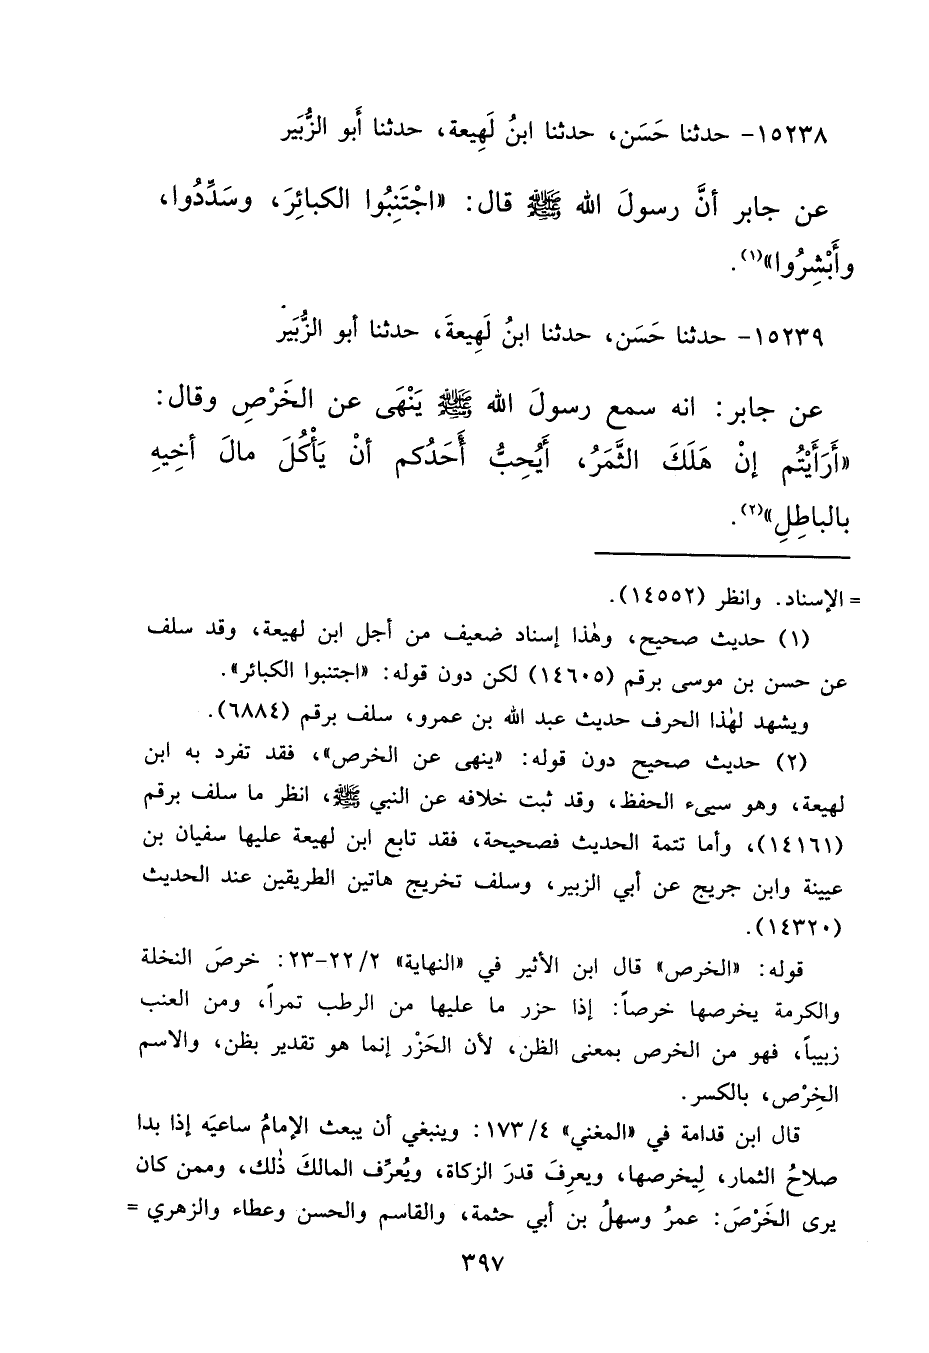 ١٥٢٣٨- حدثنا حَسَن، حدثنا ابنُ لَهِيعة، حدثنا أَبو الزُّبَير
عن جابر أنَّ رسولَ الله ﷺ قال: «اجْتَنِبُوا الكبائِرَ، وسَدِّدُوا،
وأَبْشِرُوا»(١).
١٥٢٣٩- حدثنا حَسَن، حدثنا ابنُ لَهِيعةَ، حدثنا أبو الزُّبَير
عن جابر: انه سمع رسولَ الله ﷺ يَنْهَى عن الخَرْصِ وقال:
«أَرَأَيْتُم إنْ هَلَكَ الثَّمَرُ، أَيُحِبُّ أَحَدُكم أنْ يَأْكُلَ مالَ أخِيهِ
بالباطِلِ»(٢).
= الإسناد. وانظر (١٤٥٥٢).
(١) حديث صحيح، وهٰذا إسناد ضعيف من أجل ابن لهيعة، وقد سلف
عن حسن بن موسى برقم (١٤٦٠٥) لكن دون قوله: «اجتنبوا الكبائر».
ويشهد لهٰذا الحرف حديث عبد الله بن عمرو، سلف برقم (٦٨٨٤).
(٢) حديث صحيح دون قوله: «ينهى عن الخرص»، فقد تفرد به ابن
لهيعة، وهو سيىء الحفظ، وقد ثبت خلافه عن النبي ﷺ، انظر ما سلف برقم
(١٤١٦١)، وأما تتمة الحديث فصحيحة، فقد تابع ابن لهيعة عليها سفيان بن
عيينة وابن جريج عن أبي الزبير، وسلف تخريج هاتين الطريقين عند الحديث
(١٤٣٢٠).
قوله: «الخرص» قال ابن الأثير في «النهاية» ٢/ ٢٢-٢٣: خرصَ النخلة
والكرمة يخرصها خرصاً: إذا حزر ما عليها من الرطب تمراً، ومن العنب
زبيباً، فهو من الخرص بمعنى الظن، لأن الحَزْر إنما هو تقدير بظن، والاسم
الخِرْص، بالكسر.
قال ابن قدامة في «المغني» ٤/ ١٧٣: وينبغي أن يبعث الإمامُ ساعيَه إذا بدا
صلاحُ الثمار، لِيخرصها، ويعرِفَ قدرَ الزكاة، ويُعرِّف المالكَ ذٰلك، وممن كان
يرى الخَرْصَ: عمرُ وسهلُ بن أبي حثمة، والقاسم والحسن وعطاء والزهري =
٣٩٧